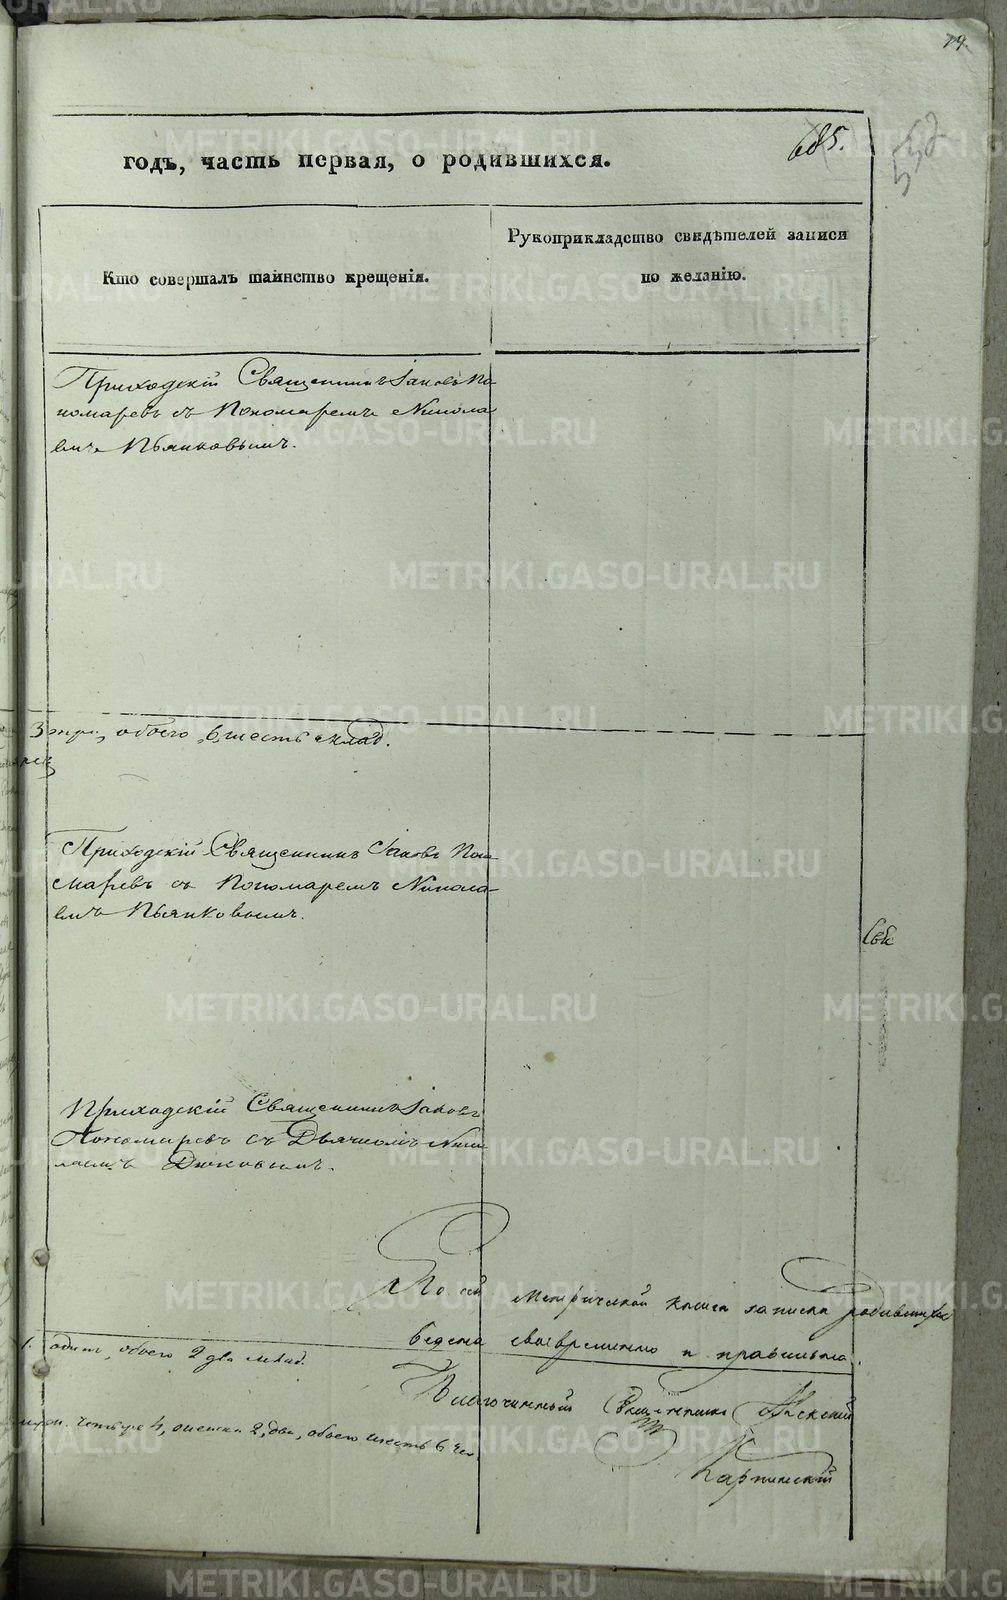 79.
685.
годъ, часть первая, о родившихся.
Кто совершалъ таинство крещенія.
Рукоприкладство свидѣтелей записи
по желанію.
Приходскій Священникъ Іаковъ По
номаревъ съ Пономаремъ Никола
емъ Пьянковымъ.
обоего 6, шесть млад.
Приходскій Священникъ Іаковъ Поно
маревъ съ Пономаремъ Никола
емъ Пьянковымъ.
Приходскій Священникъ Іаковъ
Пономаревъ съ Дьячкомъ Нико
лаемъ
По сей метрической книгѣ записка родившихся
ведена своевременно и правильно.
1. одинъ, обоего 2 два млад.
Благочинный Священникъ
четыре 4, 2, два, обоего шесть 6 чел.
Карпинскій
METRIKI.GASO-URAL.RU